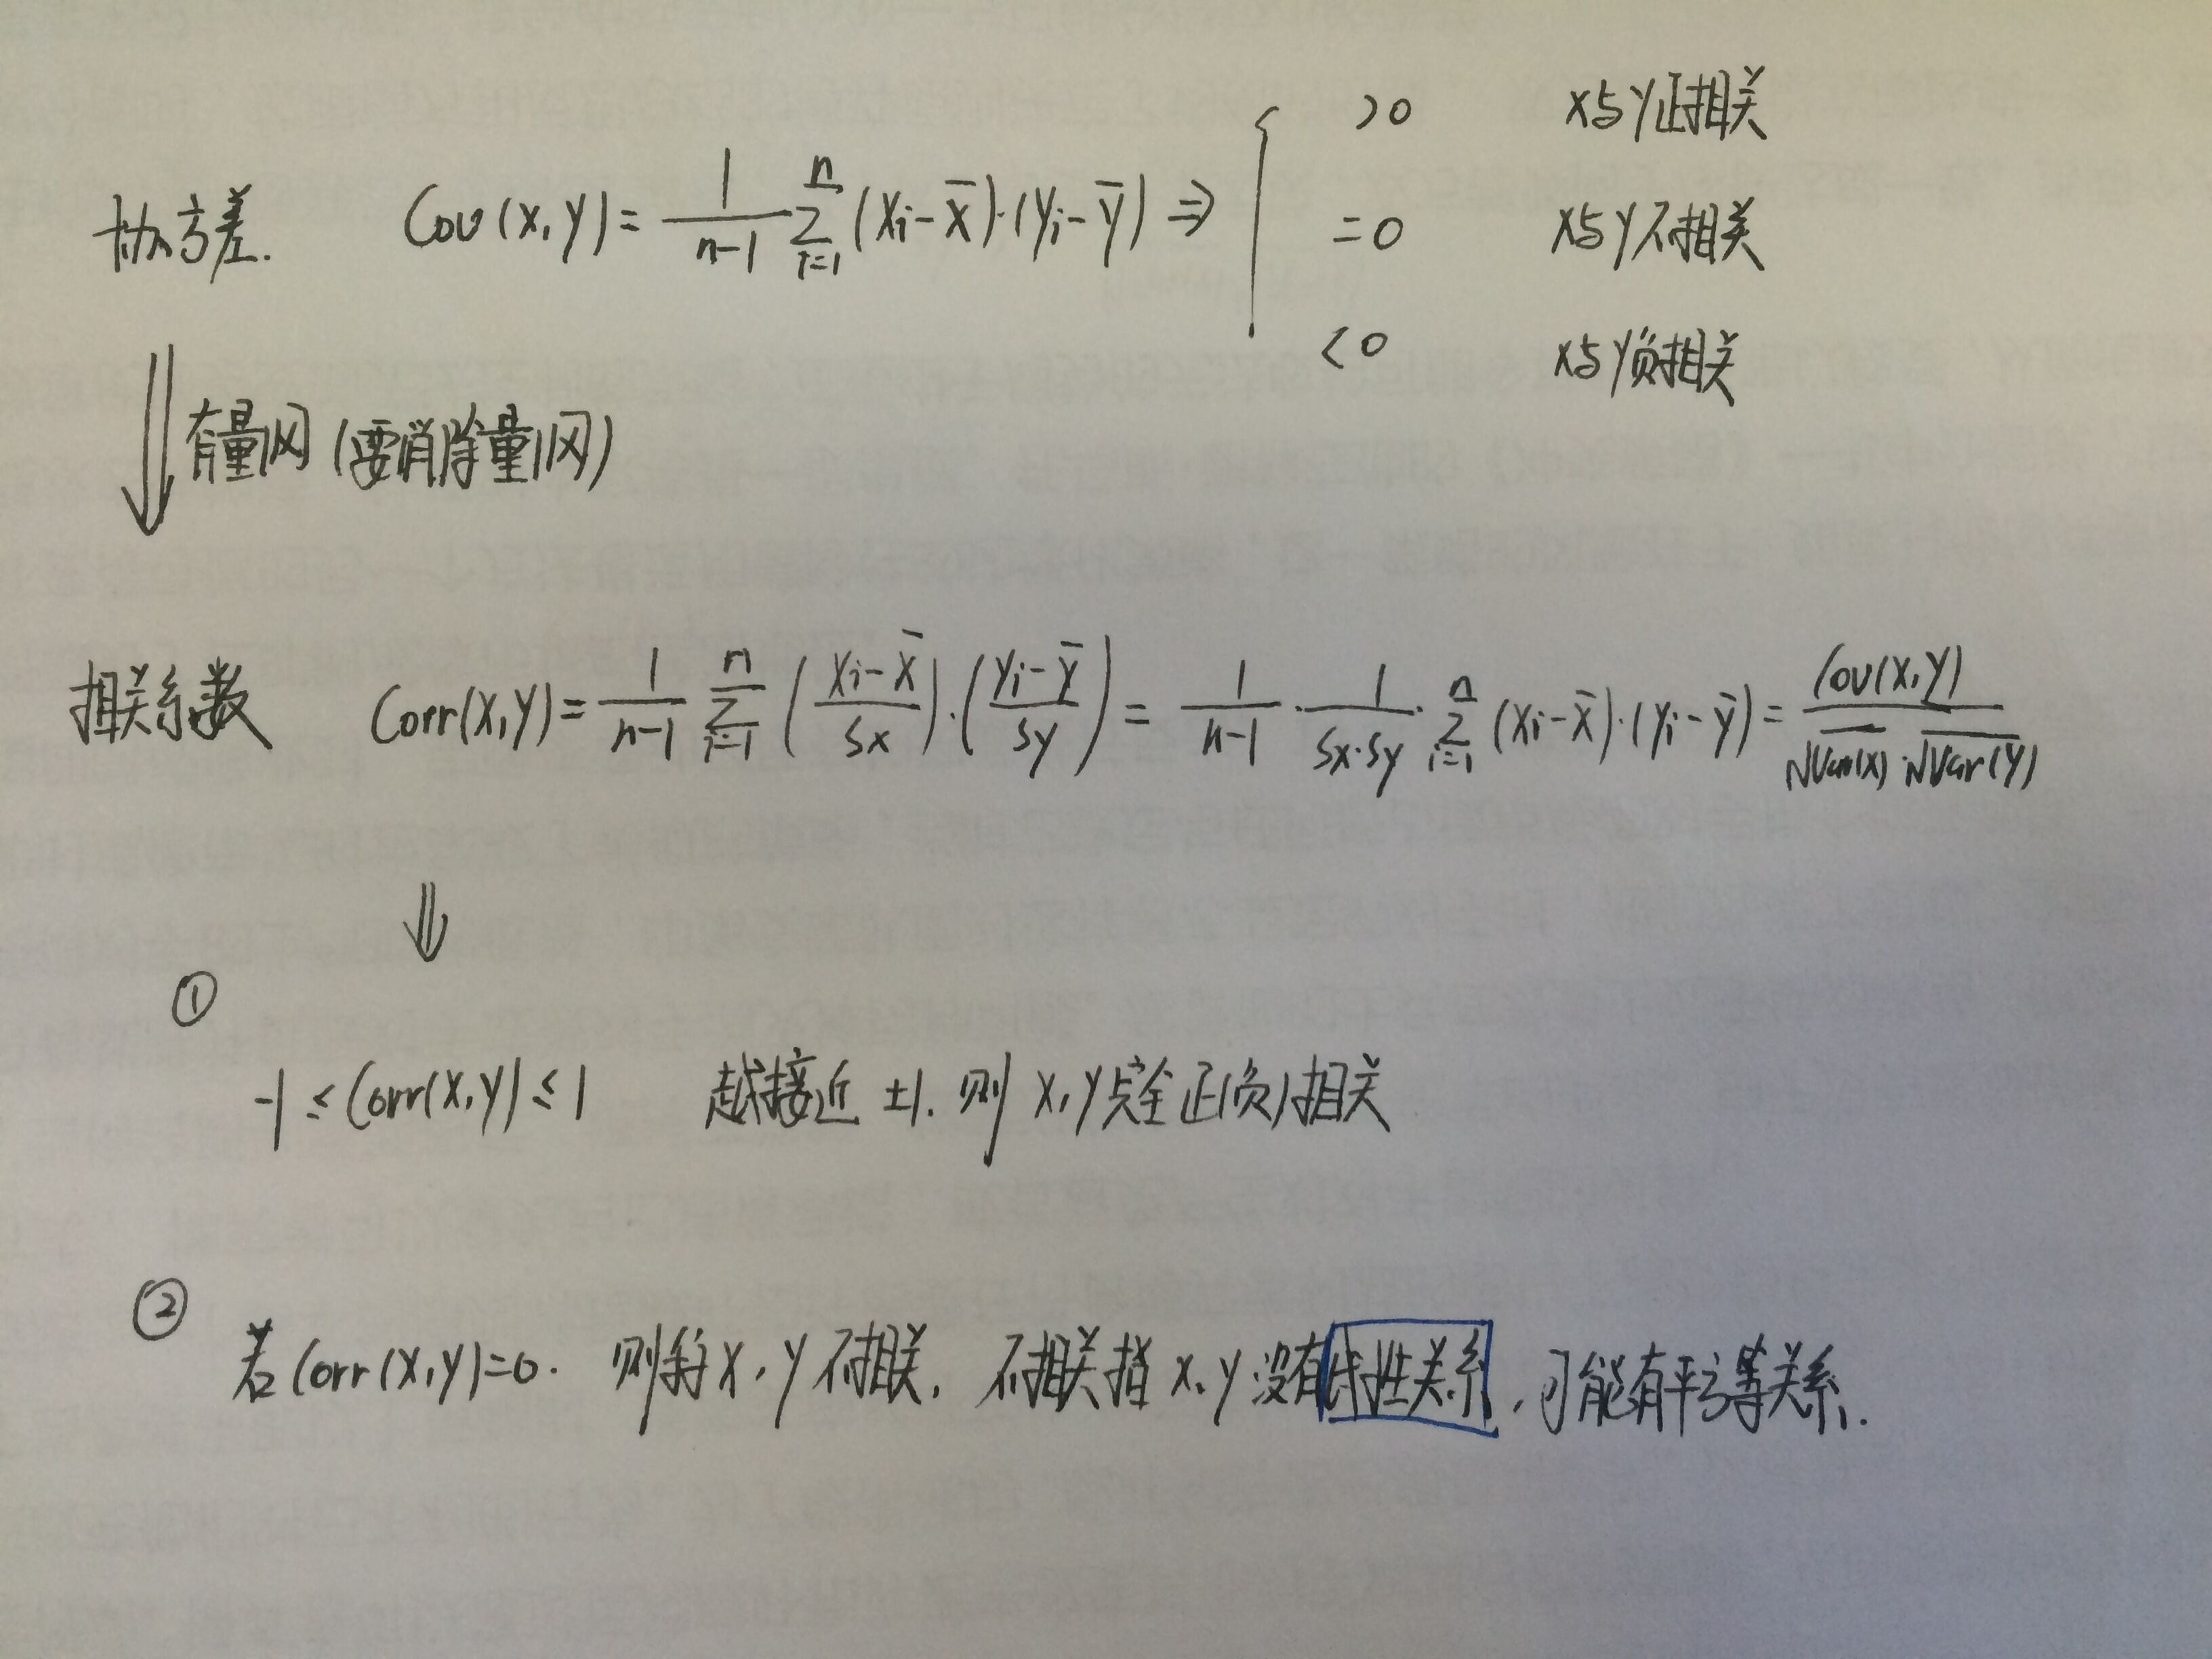 >0 X与Y正相关
协方差. Cov(X,Y)=\frac{1}{n-1}\sum_{i=1}^{n}(Xi-\bar{X})·(Yi-\bar{Y})⇒{ =0 X与Y不相关
<0 X与Y负相关
⇓ 有量冈(要消除量冈)
相关系数 Corr(X,Y)=\frac{1}{n-1}\sum_{i=1}^{n}(\frac{Xi-\bar{X}}{Sx})·(\frac{Yi-\bar{Y}}{Sy})=\frac{1}{n-1}·\frac{1}{Sx·Sy}·\sum_{i=1}^{n}(Xi-\bar{X})·(Yi-\bar{Y})=\frac{Cov(X,Y)}{\sqrt{Var(X)}·\sqrt{Var(Y)}}
⇓
①
-1≤Corr(X,Y)≤1 越接近±1.则X,Y完全正(负)相关
②
若Corr(X,Y)=0. 则称X,Y不相关, 不相关指X,Y没有线性关系,可能有平方等关系.